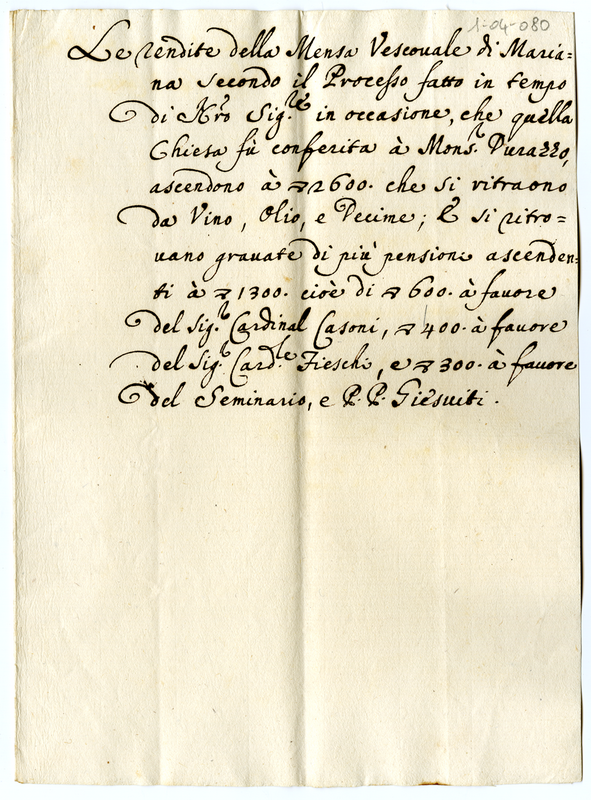 1-04-080
Le rendite della Mensa Vescouale di Maria=
na secondo il Processo fatto in tempo
di Nr̃o Sig.re in occasione, che quella
Chiesa fù conferita à Mons.r Durazzo,
ascendono à ▽2600. che si ritraono
da Vino, Olio, e Decime; E si ritro=
uano grauate di più pensioni ascenden=
ti à ▽1300. cioè di ▽600. à fauore
del Sig.r Cardinal Casoni, ▽400. à fauore
del Sig.r Card.le Fieschi, e ▽300. à fauore
del Seminario, e P.P. Giesuiti.